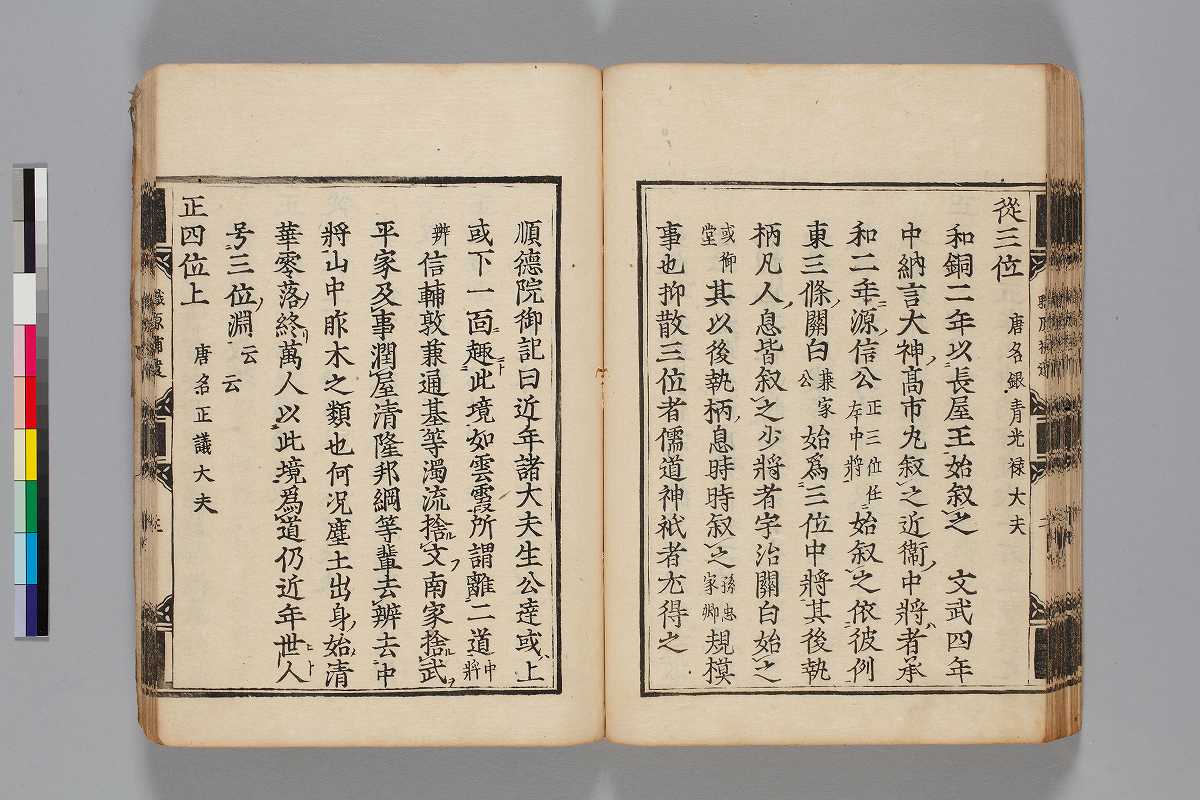 從三位 唐名銀青光禄大夫
和銅二年以長屋王始叙之 文武四年
中納言大神髙市丸叙之近衞中將者承
和二年源信公正三位任左中將始叙之依彼例
東三條關白兼家公始爲三位中將其後執
柄凡人息皆叙之少將者宇治關白始之
或御堂其以後執柄息時時叙之孫忠家卿規模
事也抑散三位者儒道神祇者尤得之
順德院御記曰近年諸大夫生公達或上
或下一面趣此境如雲霞所謂離二道中將
辨信輔敦兼通基等濁流捨文南家捨武
平家及事潤屋清隆邦綱等輩去辨去中
將山中昨木之類也何况塵土出身始清
華零落終萬人以此境爲道仍近年世人
号三位淵云云
正四位上 唐名正議大夫
職原補遺